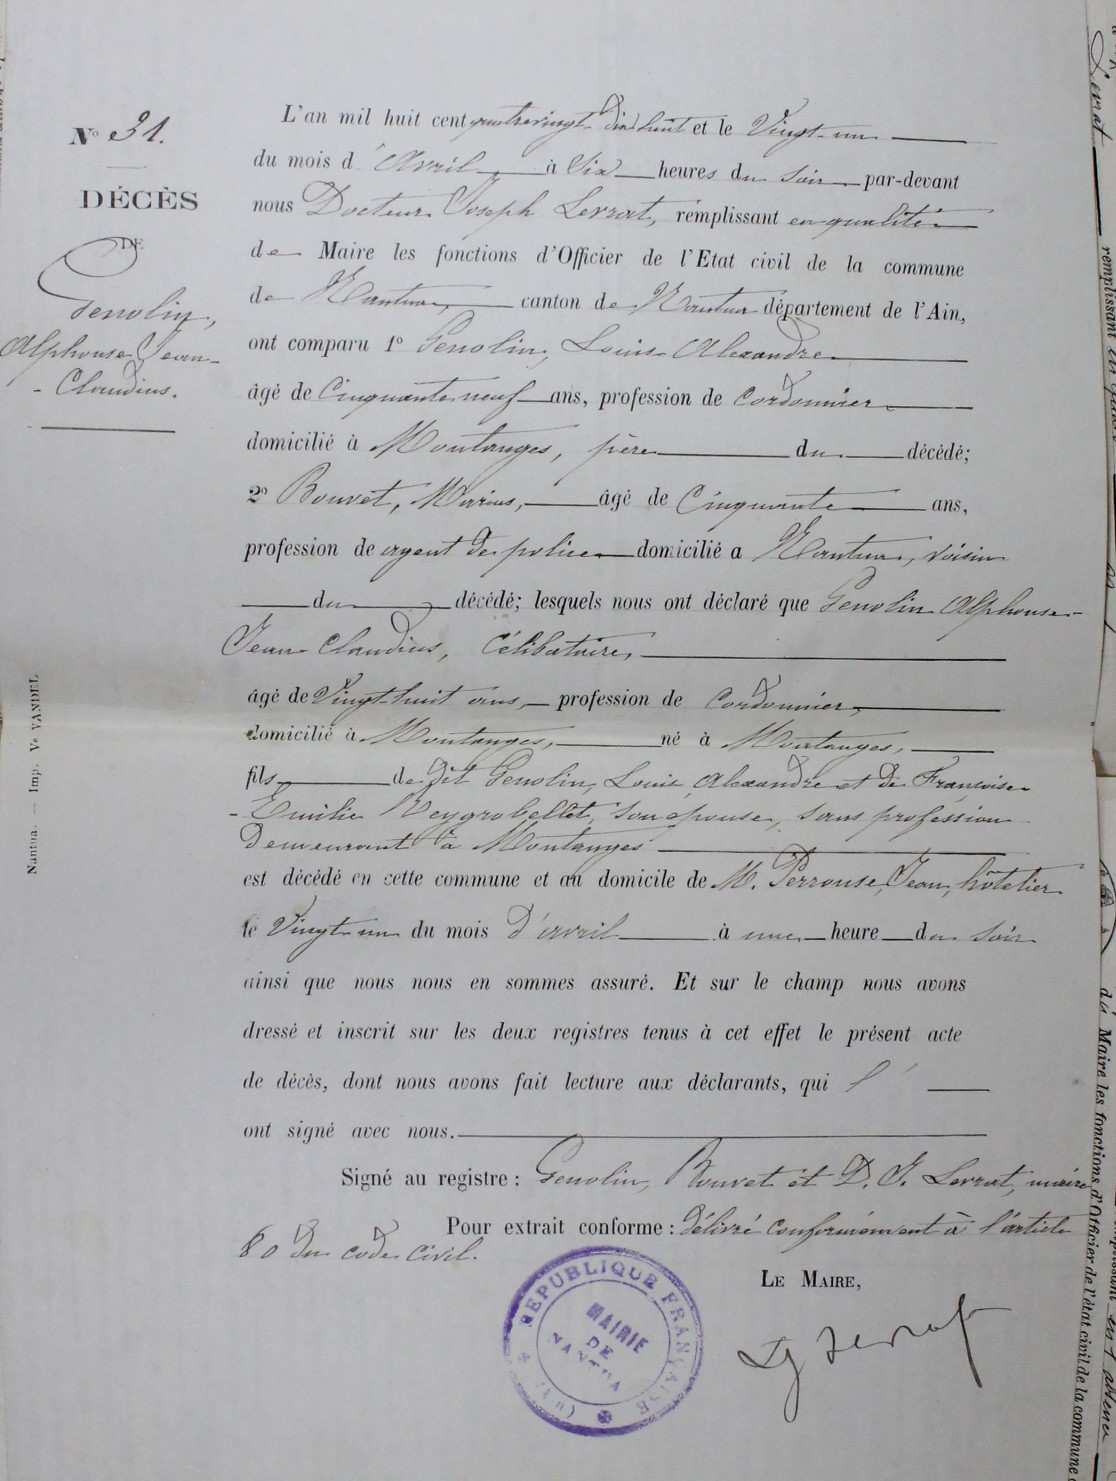 N° 31.
DÉCÈS
DE
Genolin,
Alphonse Jean-
- Claudius.
L'an mil huit cent quatrevingt dix huit et le Vingt-un
du mois d'Avril à Six heures du Soir par-devant
nous Docteur Joseph Levrat, remplissant en qualité
de Maire les fonctions d'Officier de l'Etat civil de la commune
de Nantua, canton de Nantua département de l'Ain,
ont comparu 1° Genolin, Louis Alexandre
âgé de Cinquante neuf ans, profession de Cordonnier
domicilié à Montanges, père du décédé;
2° Bouvet, Marius, âgé de Cinquante ans,
profession de agent de police domicilié a Nantua, voisin
du décédé; lesquels nous ont déclaré que Genolin Alphonse
Jean Claudius, Célibataire,
âgé de Vingt-huit ans, profession de Cordonnier,
domicilié à Montanges, né à Montanges,
fils de dit Genolin, Louis Alexandre et de Françoise
- Emilie Neygrobellet, Son épouse, sans profession
Demeurant à Montanges
est décédé en cette commune et au domicile de M. Perrouse, Jean, hôtelier
le Vingt-un du mois d'avril à une heure du Soir
ainsi que nous nous en sommes assuré. Et sur le champ nous avons
dressé et inscrit sur les deux registres tenus à cet effet le présent acte
de décès, dont nous avons fait lecture aux déclarants, qui l'
ont signé avec nous.
Signé au registre : Genolin, Bouvet et D. J. Levrat, maire
Pour extrait conforme : Délivré conformément à l'article
80 du code civil.
LE MAIRE,
RÉPUBLIQUE FRANÇAISE
MAIRIE
DE
NANTUA
(AIN)
Dr J Levrat
Nantua. — Imp. Ve VANDEL
Levrat
remplissant en
de Maire les fonctions d'Officier de l'état civil de la commune